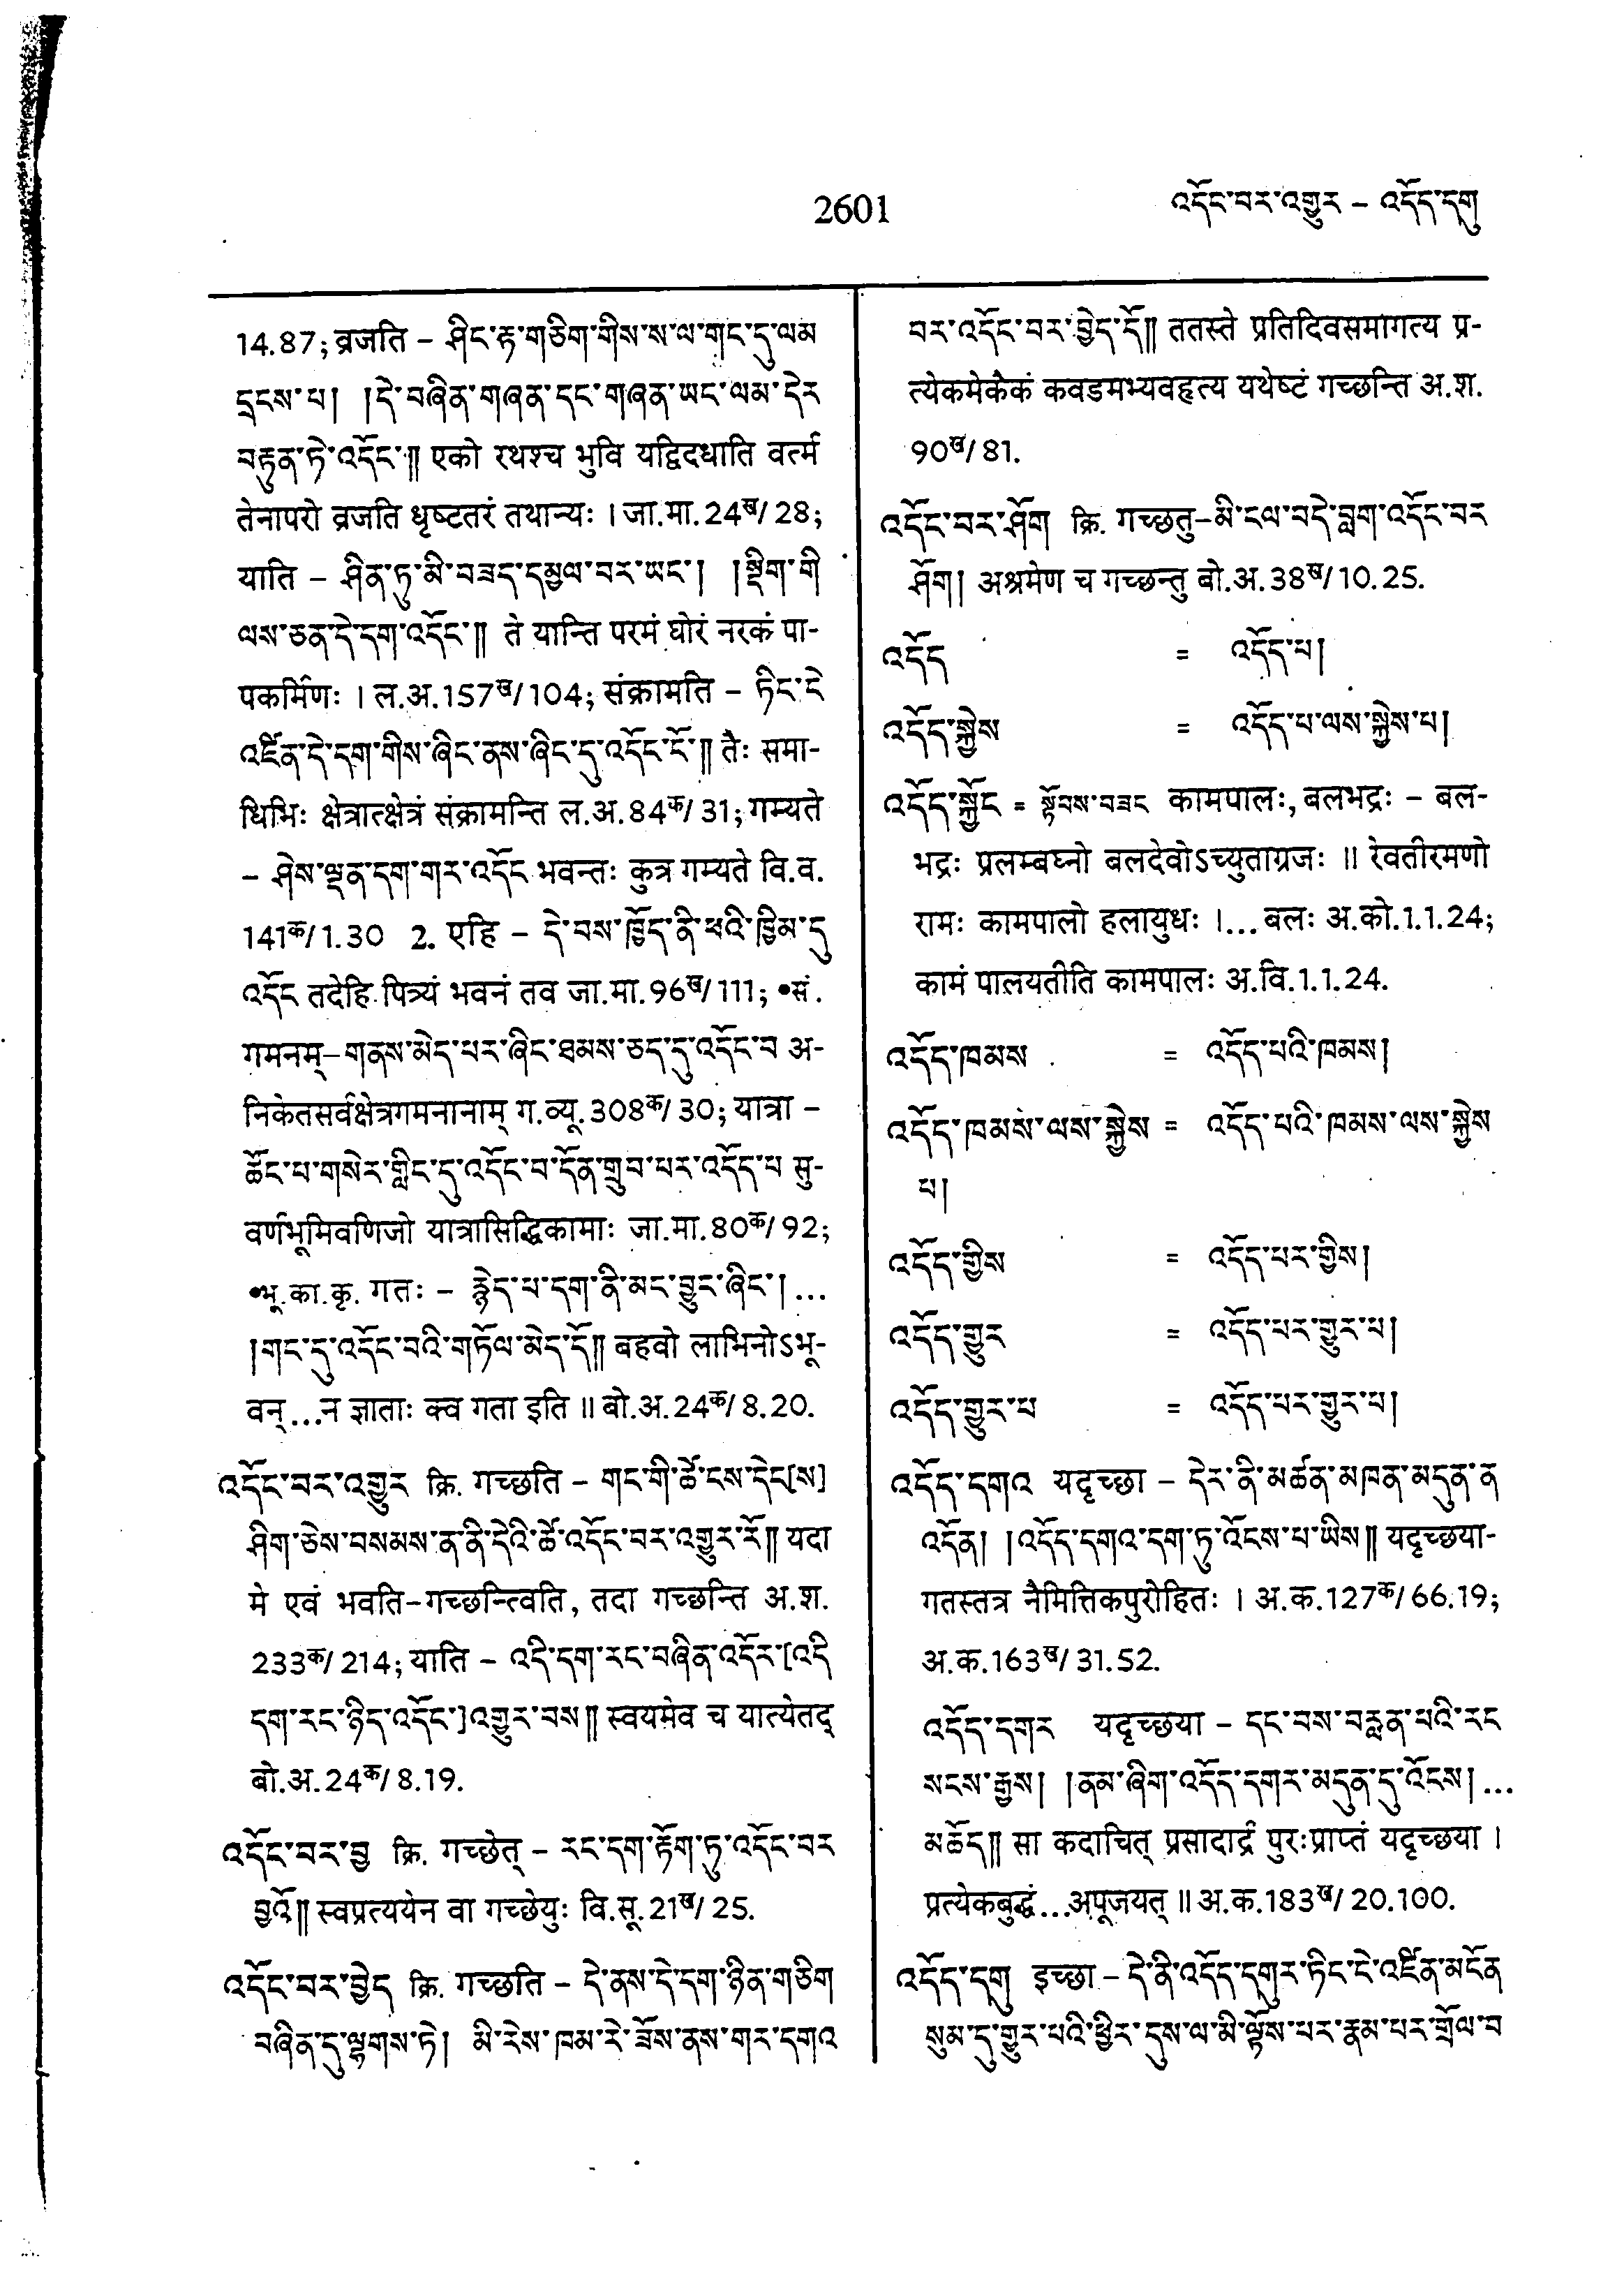 2601
འདོང་བར་འགྱུར – འདོད་དགུ
14.87; व्रजति – ཤིང་རྟ་གཅིག་གིས་ས་ལ་གང་དུ་ལམ
དྲངས་པ། །དེ་བཞིན་གཞན་དང་གཞན་ཡང་ལམ་དེར
བརྟུན་ཏེ་འདོང་༎ एको रथश्च भुवि यद्विदधाति वर्त्म
तेनापरो व्रजति धृष्टतरं तथान्यः । जा.मा.24ख/28;
याति – ཤིན་ཏུ་མི་བཟད་དམྱལ་བར་ཡང་། །སྡིག་གི
ལས་ཅན་དེ་དག་འདོང་༎ ते यान्ति परमं घोरं नरकं पा-
पकर्मिणः । ल.अ.157ख/104; संक्रामति – ཏིང་ངེ
འཛིན་དེ་དག་གིས་ཞིང་ནས་ཞིང་དུ་འདོང་ངོ་༎ तैः समा-
धिभिः क्षेत्रात्क्षेत्रं संक्रामन्ति ल.अ.84क/31; गम्यते
– ཤེས་ལྡན་དག་གར་འདོང भवन्तः कुत्र गम्यते वि.व.
141क/1.30 2. एहि – དེ་བས་ཁྱོད་ནི་ཕའི་ཁྱིམ་དུ
འདོང तदेहि पित्र्यं भवनं तव जा.मा.96ख/111; •सं.
गमनम्–གནས་མེད་པར་ཞིང་ཐམས་ཅད་དུ་འདོང་བ अ-
निकेतसर्वक्षेत्रगमनानाम् ग.व्यू.308क/30; यात्रा –
ཚོང་པ་གསེར་གླིང་དུ་འདོང་བ་དོན་གྲུབ་པར་འདོད་པ सु-
वर्णभूमिवणिजो यात्रासिद्धिकामाः जा.मा.80क/92;
•भू.का.कृ. गतः – རྙེད་པ་དག་ནི་མང་བྱུང་ཞིང་།...
།གང་དུ་འདོང་བའི་གཏོལ་མེད་དོ༎ बहवो लाभिनोऽभू-
वन्...न ज्ञाताः क्व गता इति ॥ बो.अ.24क/8.20.
འདོང་བར་འགྱུར क्रि. गच्छति – གང་གི་ཚེ་ངས་དེང[ས]
ཤིག་ཅེས་བསམས་ན་ནི་དེའི་ཚོ་འདོང་བར་འགྱུར་རོ༎ यदा
मे एवं भवति–गच्छन्त्विति, तदा गच्छन्ति अ.श.
233क/214; याति – འདི་དག་རང་བཞིན་འདོར་[འདི
དག་རང་ཉིད་འདོང་]འགྱུར་བས༎ स्वयमेव च यात्येतद्
बो.अ.24क/8.19.
འདོང་བར་བྱ क्रि. गच्छेत् – རང་དག་རྟོག་ཏུ་འདོང་བར
བྱའོ༎ स्वप्रत्ययेन वा गच्छेयुः वि.सू.21ख/25.
འདོང་བར་བྱེད क्रि. गच्छति – དེ་ནས་དེ་དག་ཉིན་གཅིག
བཞིན་དུ་ལྷགས་ཏེ། མི་རེས་ཁམ་རེ་ཟོས་ནས་གར་དགའ
བར་འདོང་བར་བྱེད་དོ༎ ततस्ते प्रतिदिवसमागत्य प्र-
त्येकमेकैकं कवडमभ्यवहृत्य यथेष्टं गच्छन्ति अ.श.
90ख/81.
འདོང་བར་ཤོག क्रि. गच्छतु–མི་ངལ་བདེ་བླག་འདོང་བར
ཤོག། अश्रमेण च गच्छन्तु बो.अ.38ख/10.25.
འདོད = འདོད་པ།
འདོད་སྐྱེས = འདོད་པ་ལས་སྐྱེས་པ།
འདོད་སྐྱོང = སྟོབས་བཟང कामपालः, बलभद्रः – बल-
भद्रः प्रलम्बघ्नो बलदेवोऽच्युताग्रजः ॥ रेवतीरमणो
रामः कामपालो हलायुधः ।... बलः अ.को.1.1.24;
कामं पालयतीति कामपालः अ.वि.1.1.24.
འདོད་ཁམས = འདོད་པའི་ཁམས།
འདོད་ཁམས་ལས་སྐྱེས = འདོད་པའི་ཁམས་ལས་སྐྱེས
པ།
འདོད་གྱིས = འདོད་པར་གྱིས།
འདོད་གྱུར = འདོད་པར་གྱུར་པ།
འདོད་གྱུར་པ = འདོད་པར་གྱུར་པ།
འདོད་དགའ यदृच्छा – དེར་ནི་མཚན་མཁན་མདུན་ན
འདོན། །འདོད་དགའ་དག་ཏུ་འོངས་པ་ཡིས༎ यदृच्छया-
गतस्तत्र नैमित्तिकपुरोहितः । अ.क.127क/66.19;
अ.क.163ख/31.52.
འདོད་དགར यदृच्छया – དང་བས་བརླན་པའི་རང
སངས་རྒྱས། །ནམ་ཞིག་འདོད་དགར་མདུན་དུ་འོངས།...
མཆོད༎ सा कदाचित् प्रसादार्द्रं पुरःप्राप्तं यदृच्छया ।
प्रत्येकबुद्धं...अपूजयत् ॥ अ.क.183ख/20.100.
འདོད་དགུ इच्छा – དེ་ནི་འདོད་དགུར་ཏིང་ངེ་འཛིན་མངོན
སུམ་དུ་གྱུར་པའི་ཕྱིར་དུས་ལ་མི་ལྟོས་པར་རྣམ་པར་གྲོལ་བ